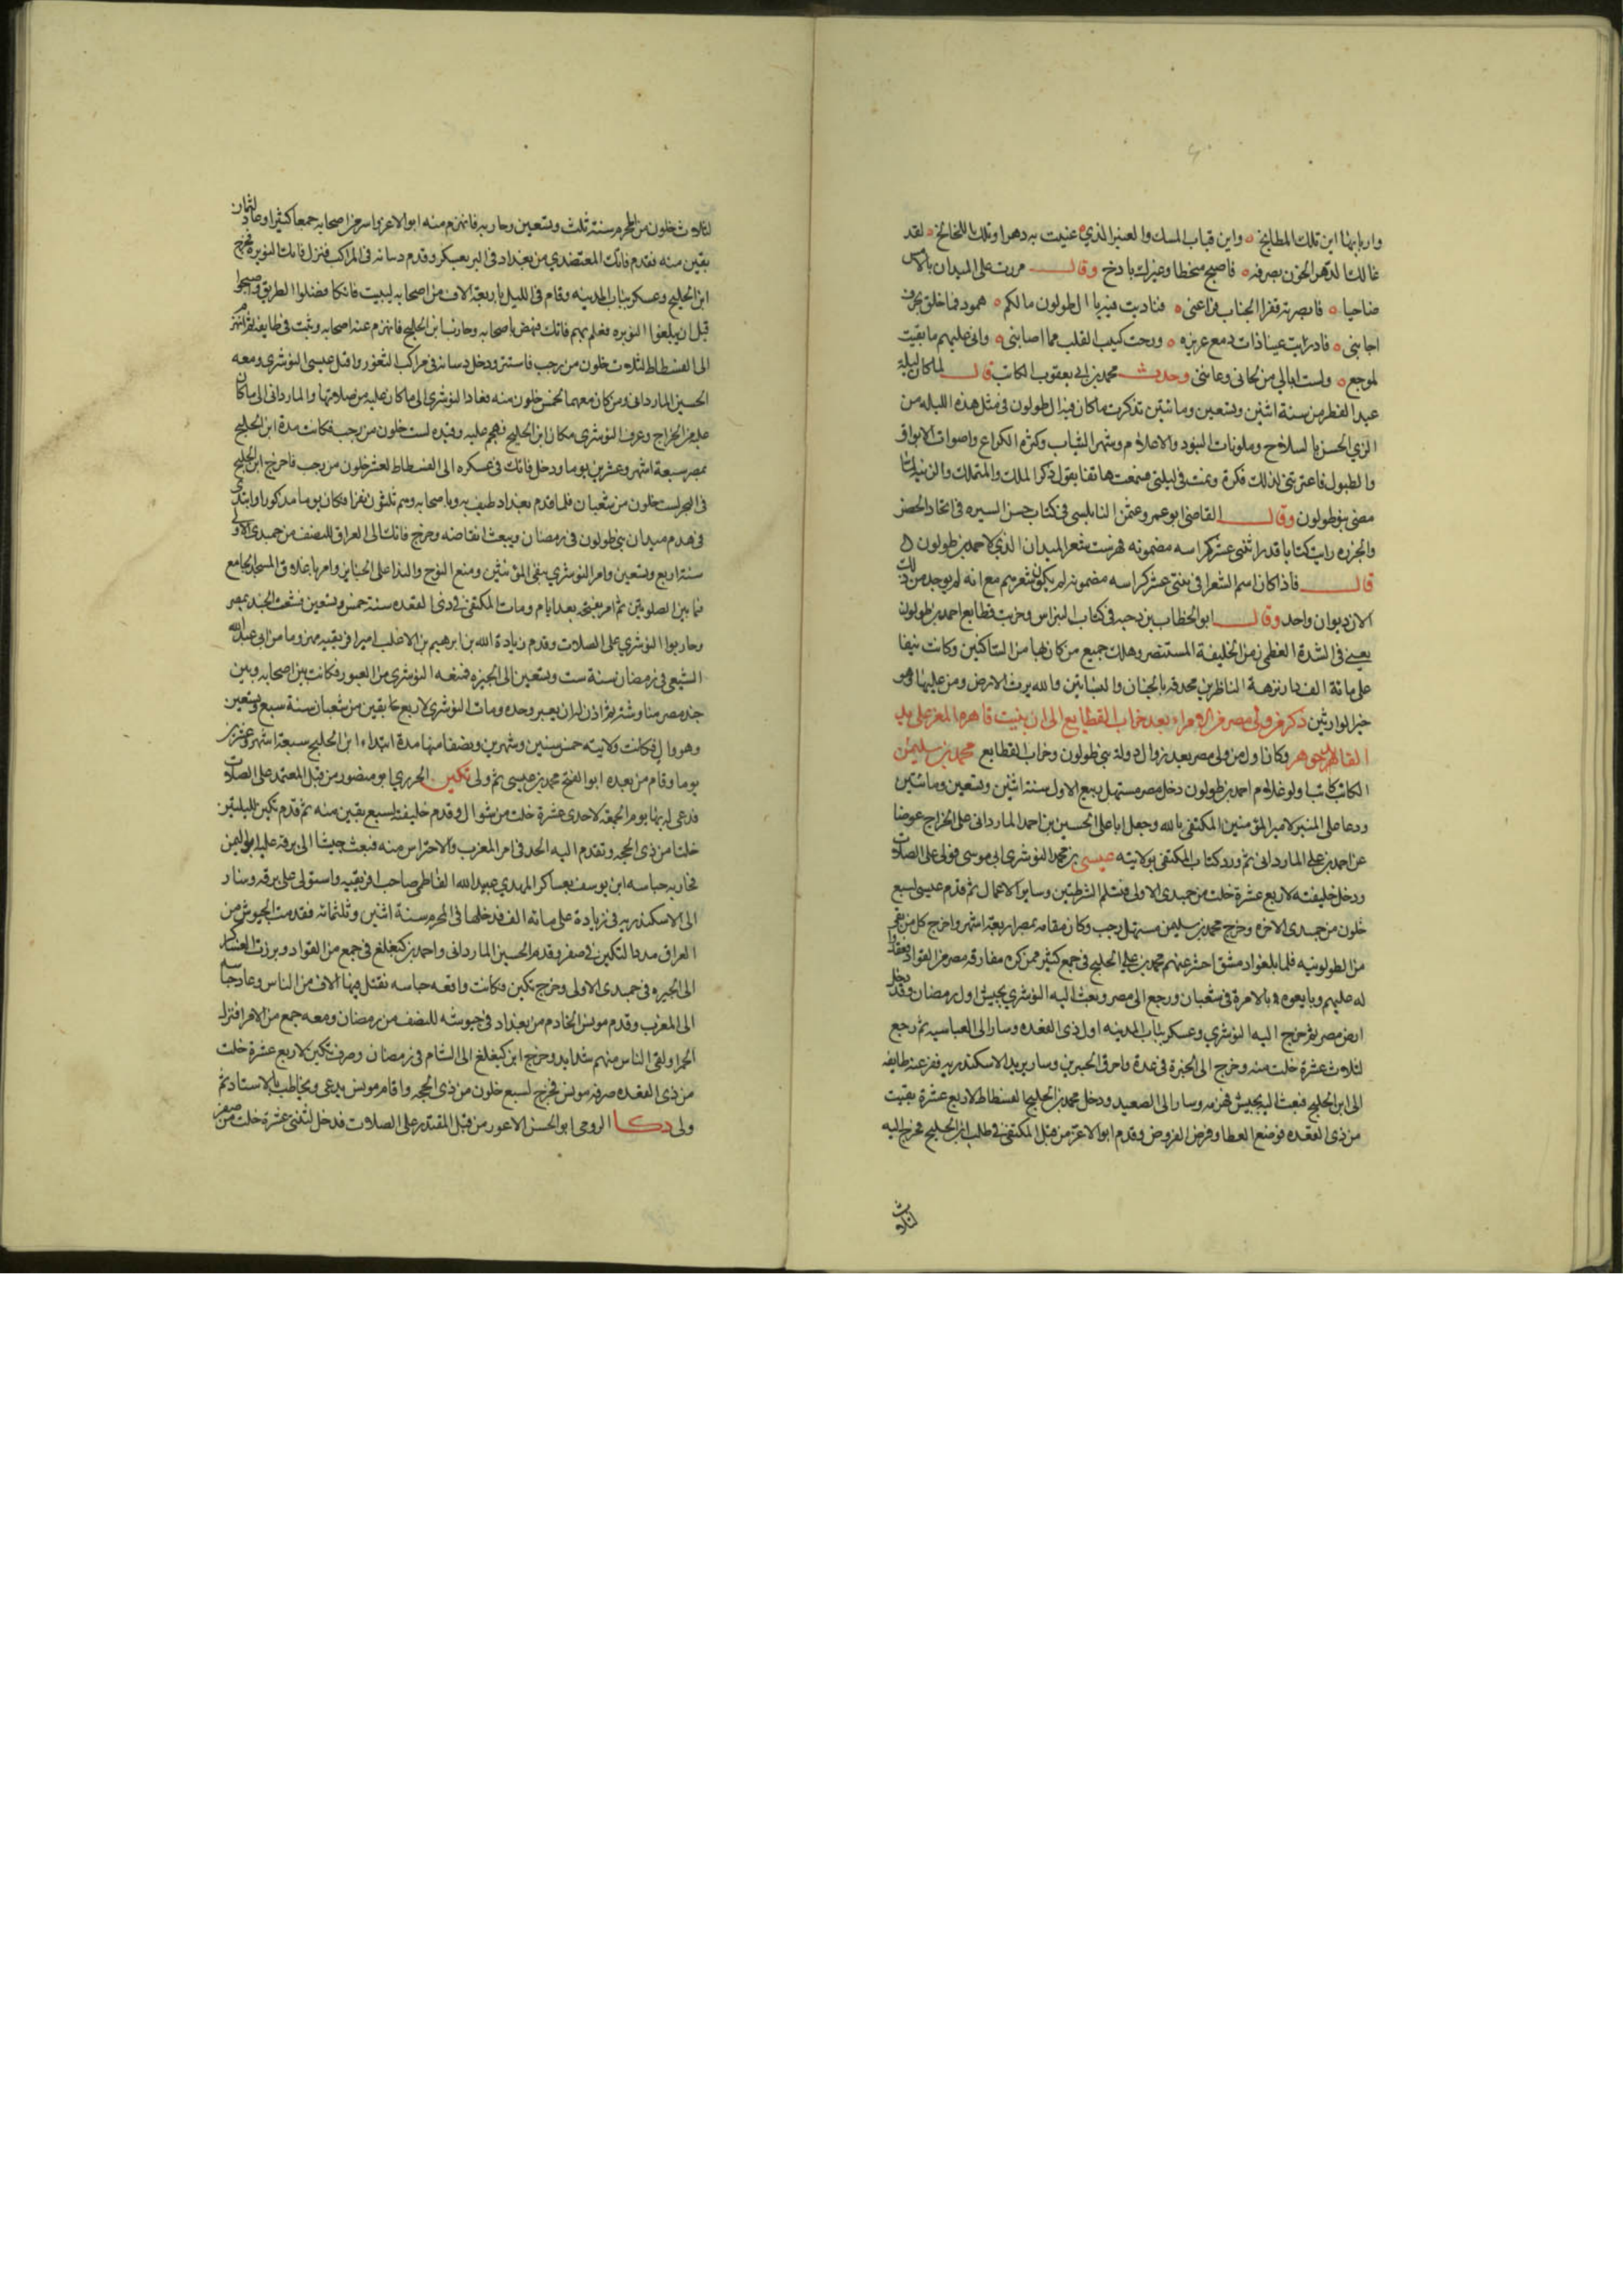 واربابها اين تلك المطابخ ه واين قباب المسك والعنبر الذي عنيت به دهرا وتلك اللخالخ ه لقد
غالك الدهر الخون بصرفه ه فاصبح منحطا وغيرك بادخ وقال مررت على الميدان بالامس
ضاحيا ه فابصرته قفرا الجناب فراعنى ه فناديت فيه يا ال طولون مالكم ه همود فما خلق بحرف
اجابنى ه فادريت عينا ذات دمع غزيره ه ورحت كئيب القلب مما اصابنى ه وانى عليهم ما بقيت
لموجع ه ولست ابالى من لحانى وعابنى وحدث محمد بن ابى يعقوب الكاتب قال لما كان ليلة
عيد الفطر من سنة اثنين وتسعين ومائتين تذكرت ما كان فيه ال طولون فى مثل هذه الليلة من
الزي الحسن بالسلاح وملونات البنود والاعلام وشهر الثياب وكثرة الكراع واصوات الابواق
والطبول فاعترتنى لذلك فكرة ونمت فى ليلتى فسمعت هاتفا يقول ذهب الملك والتملك والزينة لما
مضى بنو طولون وقال القاضى ابو عمرو عثمن النابلسى فى كتاب حسن السيره فى اتخاد الحصن
والجزره رايت كتابا قدر اثنتى عشر كراسه مضمونه فهرست شعر الميدان الذي لاحمد بن طولون
قال فاذا كان اسم الشعرا فى ثنتى عشر كراسه مضمونه لم يكون شعرهم مع انه لم يوجد من ذلك
الان ديوان واحد وقال ابو الخطاب بن دحيه فى كتاب النبراس وخربت قطايع احمد بن طولون
يعنى فى الشدة العظمى زمن الخليفة المستنصر وهلك جميع من كان بها من الساكنين وكانت نيفا
على مائة الف دار نزهة الناظرين محدقة بالجنان والبساتين والله يرث الارض ومن عليها وهو
خير الوارثين ذكر من ولى مصر من الامراء بعد خراب القطايع الى ان بنيت قاهره المعز على يد
القائد جوهر وكان اول من ولى مصر بعد زوال دولة بنى طولون وخراب القطايع محمد بن سليمن
الكاتب كاتب لولو غلام احمد بن طولون دخل مصر مستهل ربيع الاول سنة اثنين وتسعين ومائتين
ودعا على المنبر لامير المؤمنين المكتفى بالله وجعل ابا على الحسين ابن احمد الماردانى على الخراج عوضا
عن احمد بن على الماردانى ثم ورد كتاب المكتفى بولايته عيسى بن محمد النوشرى ابى موسى فولى على الصلات
ودخل خليفته لاربع عشرة خلت من جمدى الاولى فتسلم الشرطتين وساير الاعمال ثم قدم عيسى لسبع
خلون من جمدى الاخره وخرج محمد بن سليمن مستهل رجب وكان مقامه بمصر اربعة اشهر واخرج كل من بقى
من الطولونيه فلما بلغوا دمشق انحنز عنهم محمد بن على الخليج فى جمع كثير ممن كره مفارقة مصر من القواد فعقدوا
له عليهم وبايعوه بالامرة فى شعبان ورجع الى مصر وبعث اليه النوشرى بجيش اول رمضان وقد دخل
ارض مصر ثم خرج اليه النوشري وعسكر بباب المدينه اول ذى القعده وسار الى العباسيه ثم رجع
لثلاث عشرة خلت منه وخرج الى الجيزة فى غده واحرق الجسرين وسار يريد الاسكندريه ففر عنه طايفه
الى ابن الخليج فبعث اليه بجيش فهزمه وسار الى الصعيد ودخل محمد بن الخليج الفسطاط لاربع عشرة بقيت
من ذى القعده فوضع العطا وفرض الفروض وقدم ابو الاغر من قبل المكتفى فى طلب ابن الخليج فخرج اليه
لثلاث
لثلاث خلون من المحرم سنة ثلث وتسعين وحاربه فانهزم منه ابو الاغر واسر من اصحابه جمعا كثيرا وعاد لثمان
بقين منه فقدم فاتك المعتضدي من بغداد فى البر بعسكر وقدم دسانه فى المراكب فنزل فاتك النويره فخرج
ابن الخليج وعسكر بباب المدينه وقام فى الليل باربعة الاف من اصحابه ليبيت فاتكا فضلوا الطريق واصبحوا
قبل ان يبلغوا النويره فعلم بهم فاتك فنهض باصحابه وحارب ابن الخليج فانهزم عنه اصحابه وثبت فى طايفه ثم انهزم
الى الفسطاط لثلاث خلون من رجب فاستتر ودخل دسانه فى مراكب الثغور واقبل عيسى النوشرى ومعه
الحسين الماردانى ومن كان معهما لخمس خلون منه فعاد النوشرى الى ما كان عليه من صلاتها والماردانى الى ما كان
عليه من الخراج وعرف النوشرى مكان ابن الخليج فهجم عليه وقيده لست خلون من رجب فكانت مدة ابن الخليج
بمصر سبعة اشهر وعشرين يوما ودخل فاتك فى عسكره الى الفسطاط لعشر خلون من رجب فاخرج ابن الخليج
فى البحر لست خلون من شعبان فلما قدم بغداد طيف به وباصحابه وهم ثلثون نفرا فكان يوما مذكورا وابتدى
فى هدم ميدان بنى طولون فى رمضان وبيعت انقاضه وخرج فاتك الى العراق للنصف من جمدى الاولى
سنة اربع وتسعين وامر النوشري بنفى المؤنثين ومنع النوح والندا على الجنايز وامر باغلاق المسجد الجامع
فما بين الصلوتين ثم امر بفتحه بعد ايام ومات المكتفى فى ذى القعده سنة خمس وتسعين فشغب الجند بمصر
وحاربوا النوشري على الصلات وقدم زيادة الله بن ابرهيم بن الاغلب امير افريقيه مهزوما من ابى عبد الله
الشيعى فى رمضان سنة ست وتسعين الى الجيزه فمنعه النوشرى من العبور فكانت بين اصحابه وبين
جند مصر مناوشة ثم اذن له ان يعبر وحده ومات النوشرى لاربع بقين من شعبان سنة سبع وتسعين
وهو وال فكانت ولايته خمس سنين وشهرين ونصفا منها مدة ابتداء ابن الخليج سبعة اشهر وعشرين
يوما وقام من بعده ابو الفتح محمد بن عيسى ثم ولى تكين الحررى ابو منصور من قبل المعتمد على الصلات
فدعى له بها يوم الجمعة لاحدى عشرة خلت من شوال وقدم خليفته لسبع بقين منه ثم قدم تكين لليلتين
خلتا من ذى الحجه وتقدم اليه الحد فى امر المغرب والاحتراس منه فبعث جيشا الى برقه عليه ابو اليمن
فحاربه حباسه ابن يوسف بعساكر المهدي عبيد الله الفاطمى صاحب افريقيه واستولى على برقه وسار
الى الاسكندريه فى زيادة على مائه الف فدخلها فى المحرم سنة اثنين وثلثمائه فقدمت الجيوش من
العراق مددا لتكين فى صفر وقدم الحسين الماردانى واحمد بن كيغلغ فى جمع من القواد وبرزت العساكر
الى الجيزه فى جمدى الاولى وخرج تكين فكانت واقعه حباسه فقتل فيها الاف من الناس وعاد حباسه
الى المغرب وقدم مونس الخادم من بغداد فى جيوشه للنصف من رمضان ومعه جمع من الامرا فنزل
الحمرا ولقى الناس منهم شدايد وخرج ابن كيغلغ الى الشام فى رمضان وصرف تكين لاربع عشرة خلت
من ذى القعده صرفه مونس فخرج لسبع خلون من ذى الحجه واقام مونس يدعى ويخاطب بالاستاد ثم
ولى دكا الرومى ابو الحسن الاعور من قبل المقتدر على الصلات فدخل لثنتى عشرة خلت من صفر